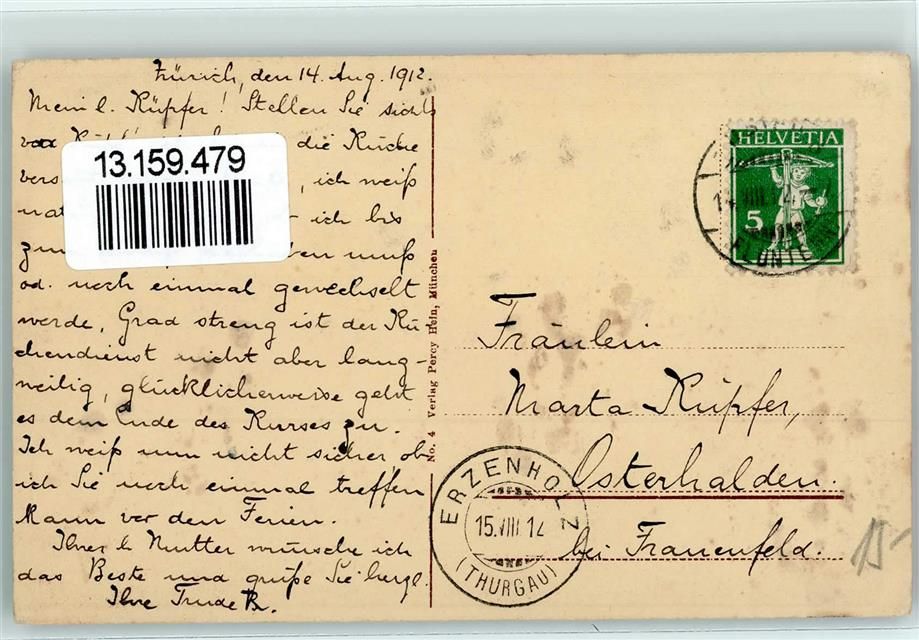 Zürich, den 14. Aug. 1912.
Mein l. Küpfer! Stellen Sie sichs
vor die Küche
vers , ich weiß
nat ich bis
zu muß
od. noch einmal gewechselt
werde, Grad streng ist der Kü-
chendienst nicht aber lang-
weilig, glücklicherweise geht
es dem Ende des Kurses zu.
Ich weiß nun nicht sicher ob
ich Sie noch einmal treffen
kann vor den Ferien.
Ihrer l. Mutter wünsche ich
das Beste und grüße Sie herzl.
Ihre Trude R.
13.159.479
No. 4 Verlag Percy Hein, München
HELVETIA
5
FLUNTERN
Fräulein
Marta Küpfer,
Osterhalden.
bei Frauenfeld.
ERZENHOLZ
15.VIII.12
(THURGAU)
15-